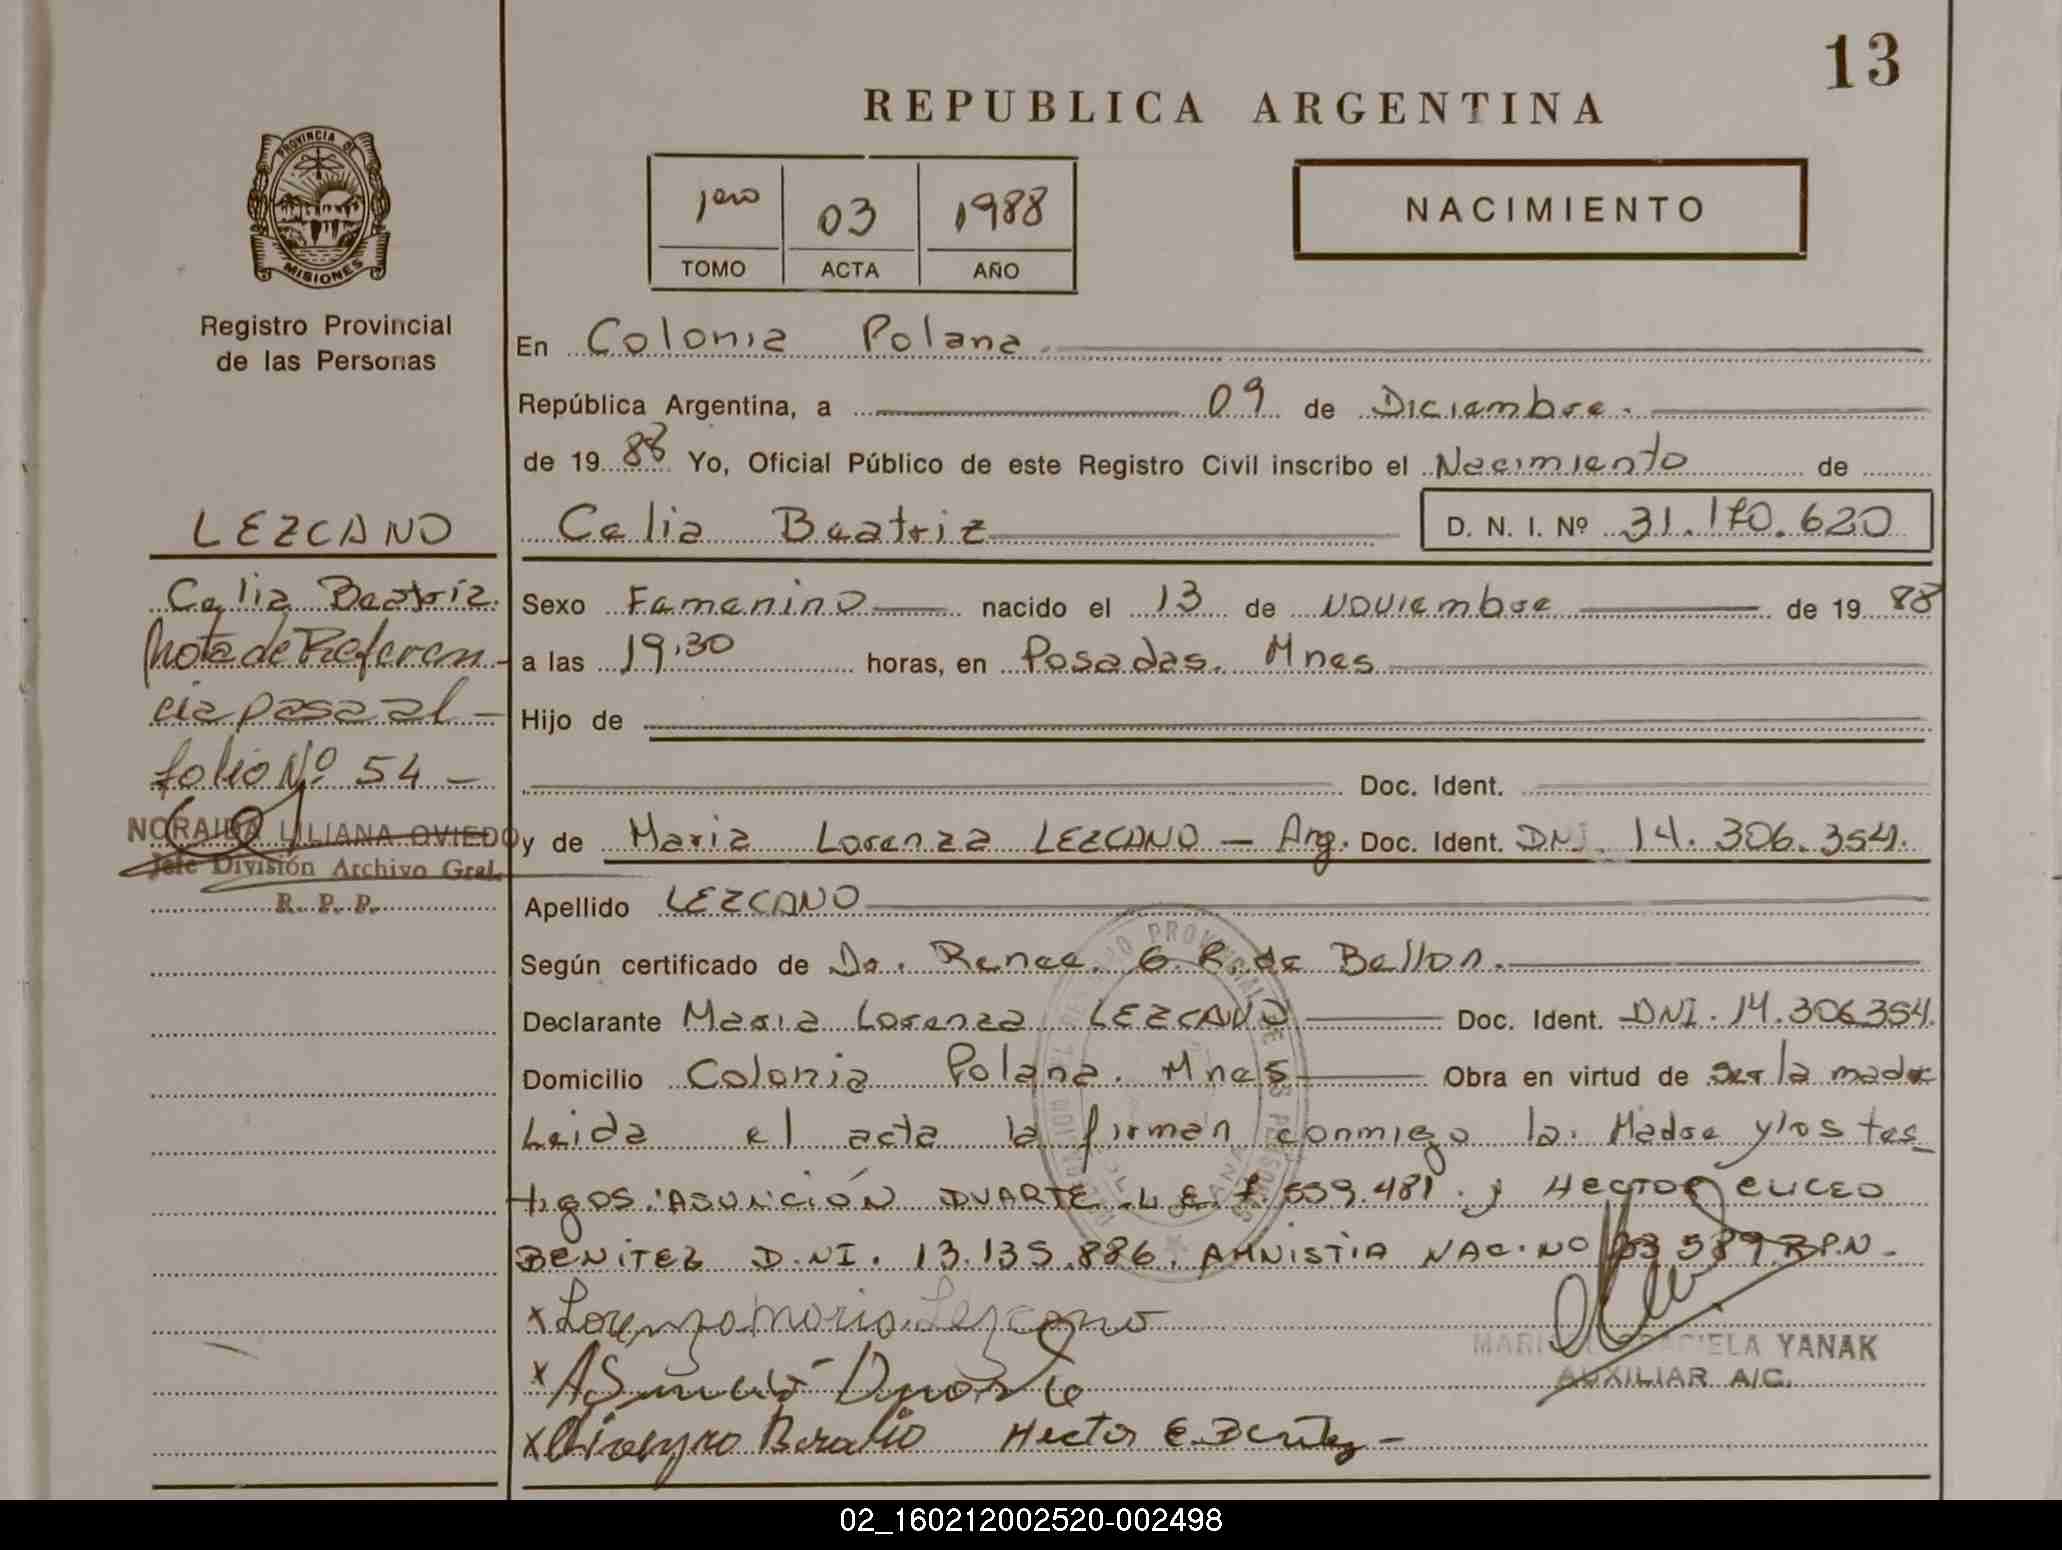 13
REPUBLICA ARGENTINA
PROVINCIA DE
MISIONES
Registro Provincial
de las Personas
1ero 03 1988
TOMO ACTA AÑO
NACIMIENTO
En Colonia Polana
República Argentina, a 09 de Diciembre.
de 19 88 Yo, Oficial Público de este Registro Civil inscribo el Nacimiento de
LEZCANO
Celia Beatriz
D. N. I. Nº 31.170.620
Celia Beatriz.
Nota de Referen-
cia pasa al -
folio Nº 54 -
NORAIDA LILIANA OVIEDO
Jefe División Archivo Gral.
R. P. P.
Sexo Femenino nacido el 13 de Noviembre de 19 88
a las 19,30 horas, en Posadas. Mnes
Hijo de
Doc. Ident.
y de Maria Lorenza LEZCANO - Arg. Doc. Ident. DNI. 14.306.354.
Apellido LEZCANO
Según certificado de Dr. Renee. G. R. de Bellon.
Declarante Maria Lorenza LEZCANO Doc. Ident. DNI. 14.306.354.
Domicilio Colonia Polana. Mnes Obra en virtud de ser la madre
Leida el acta la firman conmigo la Madre y los tes-
tigos: ASUNCIÓN DUARTE L.E. 7.559.481. y HECTOR ELICEO
BENITEZ D.NI. 13.135.886. AMNISTIA NAC. Nº 23589 R.P.N.-
x Lorenza Maria Lezcano
x Asunció Duarte
x Hector E. Benitez -
YANAK
AUXILIAR A/C.
02_160212002520-002498